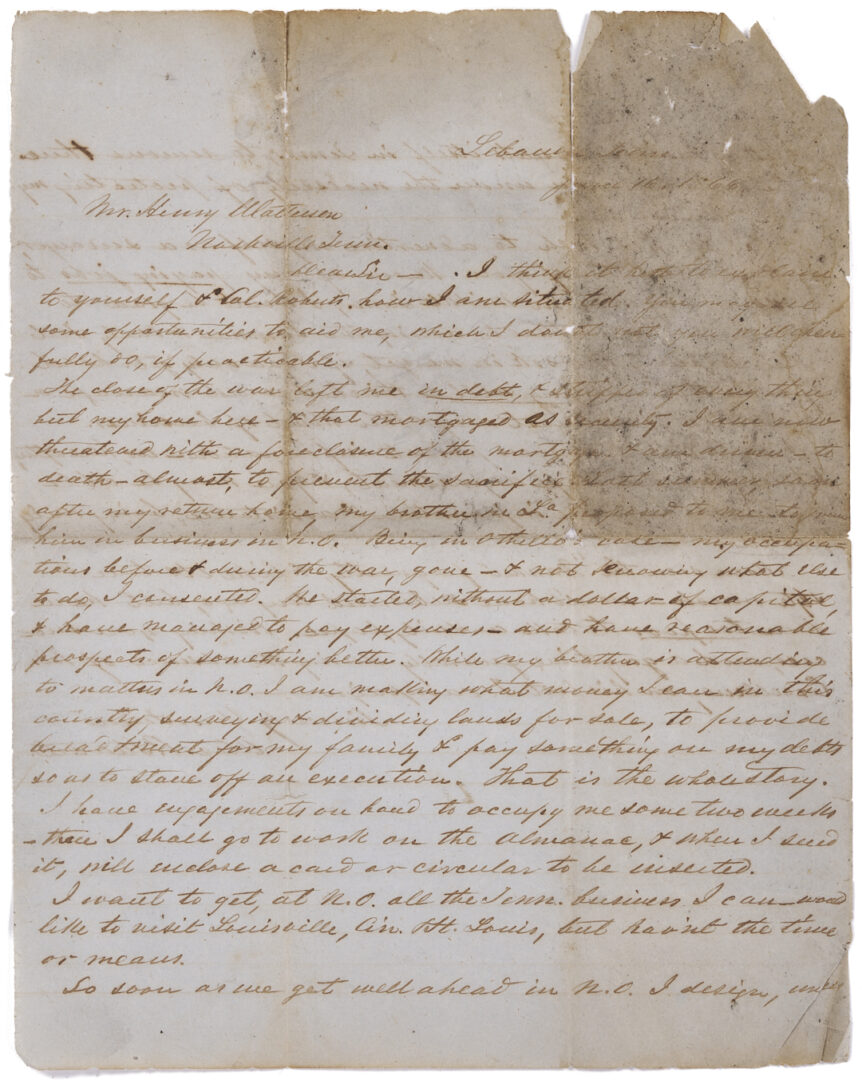 Lebanon Tenn
June 16. 1866.
Mr. Henry Watterson
Nashville Tenn.
Dear Sir — . I think it best to explain
to yourself & Col. Roberts, how I am situated. You may see
some opportunities to aid me, which I doubt not you will cheer
fully do, if practicable.
The close of the war left me in debt, & stripped of every thing
but my home here — & that mortgaged as security. I am now
threatened with a foreclosure of the mortgage & am driven — to
death — almost, to prevent the sacrifice. Last summer, soon
after my return home my brother in La proposed to me to join
him in business in N.O. Being in Othello's case — my occupa
tions before & during the war, gone — & not knowing what else
to do, I consented. We started, without a dollar of capital,
& have managed to pay expenses — and have reasonable
prospects of something better. While my brother is attending
to matters in N.O. I am making what money I can in this
country surveying & dividing lands for sale, to provide
bread & meat for my family & pay something on my debts
so as to stave off an execution. That is the whole story.
I have engagements on hand to occupy me some two weeks
— then I shall go to work on the almanac, & when I send
it, will inclose a card or circular to be inserted.
I want to get, at N.O. all the Tenn. business I can — would
like to visit Louisville, Cin. & St. Louis, but hav'nt the time
or means.
So soon as we get well ahead in N.O. I design,